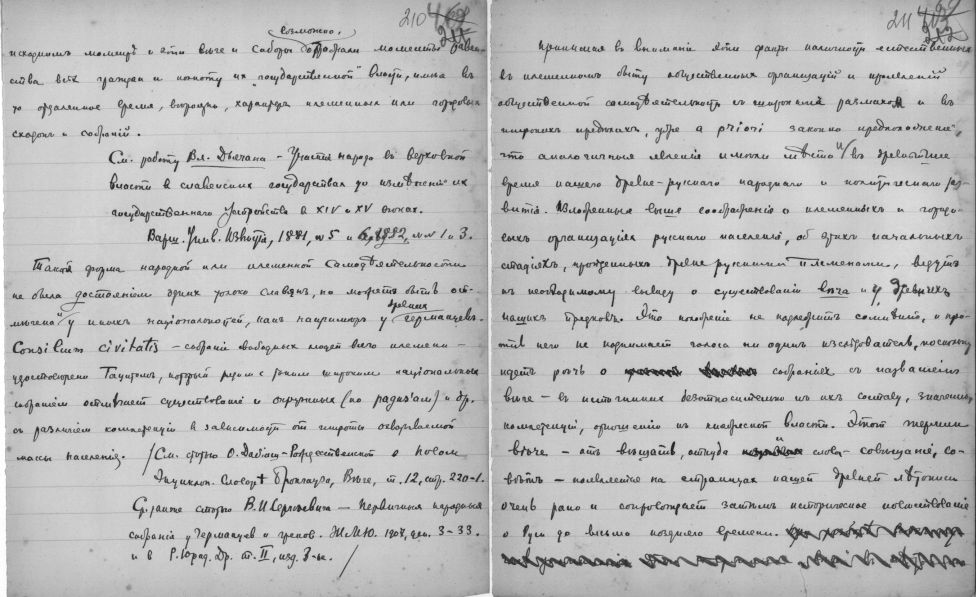 210
возможно,
искорномъ моменту и эти вѣче и соборы отображали моменты равен-
ства всѣхъ гражданъ и полноту ихъ "государственной" власти, имѣя въ
то отдаленное время, вѣроятно, характеръ племенныхъ или городовыхъ
сходокъ и собраній.
См. работу Вл. Дьячана – Участіе народа въ верховной
власти въ славянскихъ государствахъ до измѣненія ихъ
государственнаго устройства въ XIV и XV вѣкахъ.
Варш. Унив. Извѣстія, 1881, № 5 и 1882, №№ 1 и 3.
Такая форма народной или племенной самодѣятельности
не была достояніемъ однихъ только славянъ, но можетъ быть от-
мѣчена и у иныхъ національностей, какъ напримѣръ у древнихъ германцевъ.
Consilium civitatis – собраніе свободныхъ людей всего племени –
удостовѣрено Тацитомъ, который рядомъ съ такимъ широкимъ національнымъ
собраніемъ отмѣчаетъ существованіе и окружныхъ (по radius'ам) и др.
съ различіемъ компетенціи въ зависимости отъ широты охватываемой
массы населенія. /См. статью О. Добіаш-Рождественской въ Новомъ
Энциклоп. Словарѣ Брокгауза, Вѣче, т. 12, стр. 220-1.
Ср. также статью В. И. Сергѣевича – Первичныя народныя
собранія у германцевъ и грековъ. Ж.М.Ю. 3–33.
и в Р. Юрид. Др. т. II, изд. 3-ье. /
211
Принимая во вниманіе эти факты наличности естественныхъ
въ племенномъ быту общественныхъ организацій и проявленій
общественной самодѣятельности съ широкимъ размахомъ и въ
широкихъ предѣлахъ, уже a priori законно предположеніе,
что аналогичныя явленія имѣли мѣсто и въ древнѣйшее
время нашего древне-русскаго народнаго и политическаго раз-
витія. Изложенныя выше соображенія о племенныхъ и город-
скихъ организаціяхъ русскаго населенія, объ ихъ начальныхъ
стадіяхъ, пройденныхъ древне русскими племенами, ведутъ
къ необходимому выводу о существованіи вѣча и у древнихъ
нашихъ предковъ. Это положеніе не подлежитъ сомнѣнію, и про-
тивъ него не поднимаетъ голоса ни одинъ изслѣдователь, поскольку
идетъ рѣчь о собраніяхъ съ названіемъ
вѣче – въ источникахъ безотносительно къ ихъ составу, значенію,
компетенціи, отношенію къ княжеской власти. Этотъ терминъ
– вѣче – отъ вѣщать, откуда слова – совѣщаніе, со-
вѣтъ – появляется на страницахъ нашей древней лѣтописи
очень рано и сопровождаетъ затѣмъ историческое повѣствованіе
о Руси до весьма поздняго времени.